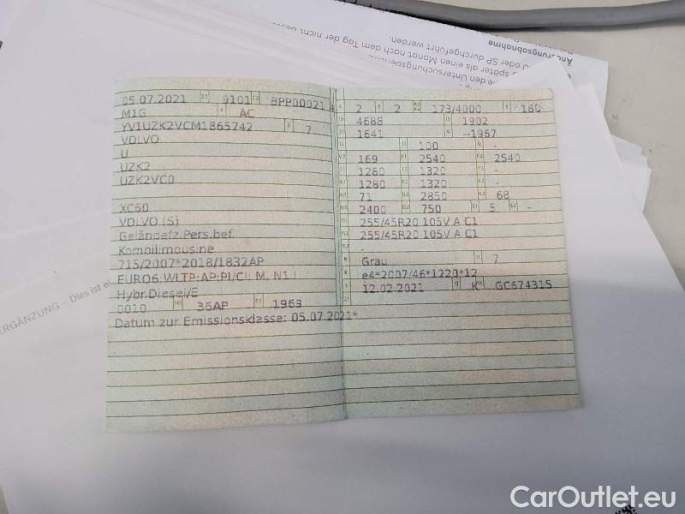 05.07.2021 9101 8PP00021 4
M1G AC
YV1UZK2VCM1865742 7
VOLVO
U
UZK2
UZK2VC0
XC60
VOLVO (S)
Geländefz.Pers.bef.
Kombilimousine
715/2007*2018/1832AP
EURO6;WLTP;AP;PI/CI; M, N1 I
Hybr.Diesel/E
0010 36AP 1969
Datum zur Emissionsklasse: 05.07.2021*
2 2 173/4000 180
4688 1902
1641 1967
100 -
169 2540 2540
1260 1320 -
1260 1320 -
71 2850 68
2400 750 5 -
255/45R20 105V A C1
255/45R20 105V A C1
Grau 7
e4*2007/46*1220*12
12.02.2021 K GC674315
ERGÄNZUNG - Dies ist ei
Änderungsabnahme
oder SP durchgeführt werden
später als einen Monat nach dem Tag der nicht be
CarOutlet.eu